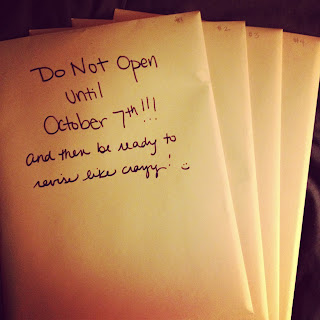 #1
#2
#3
#4
Do Not Open
until
October 7th!!!
and then be ready to
revise like crazy! :)